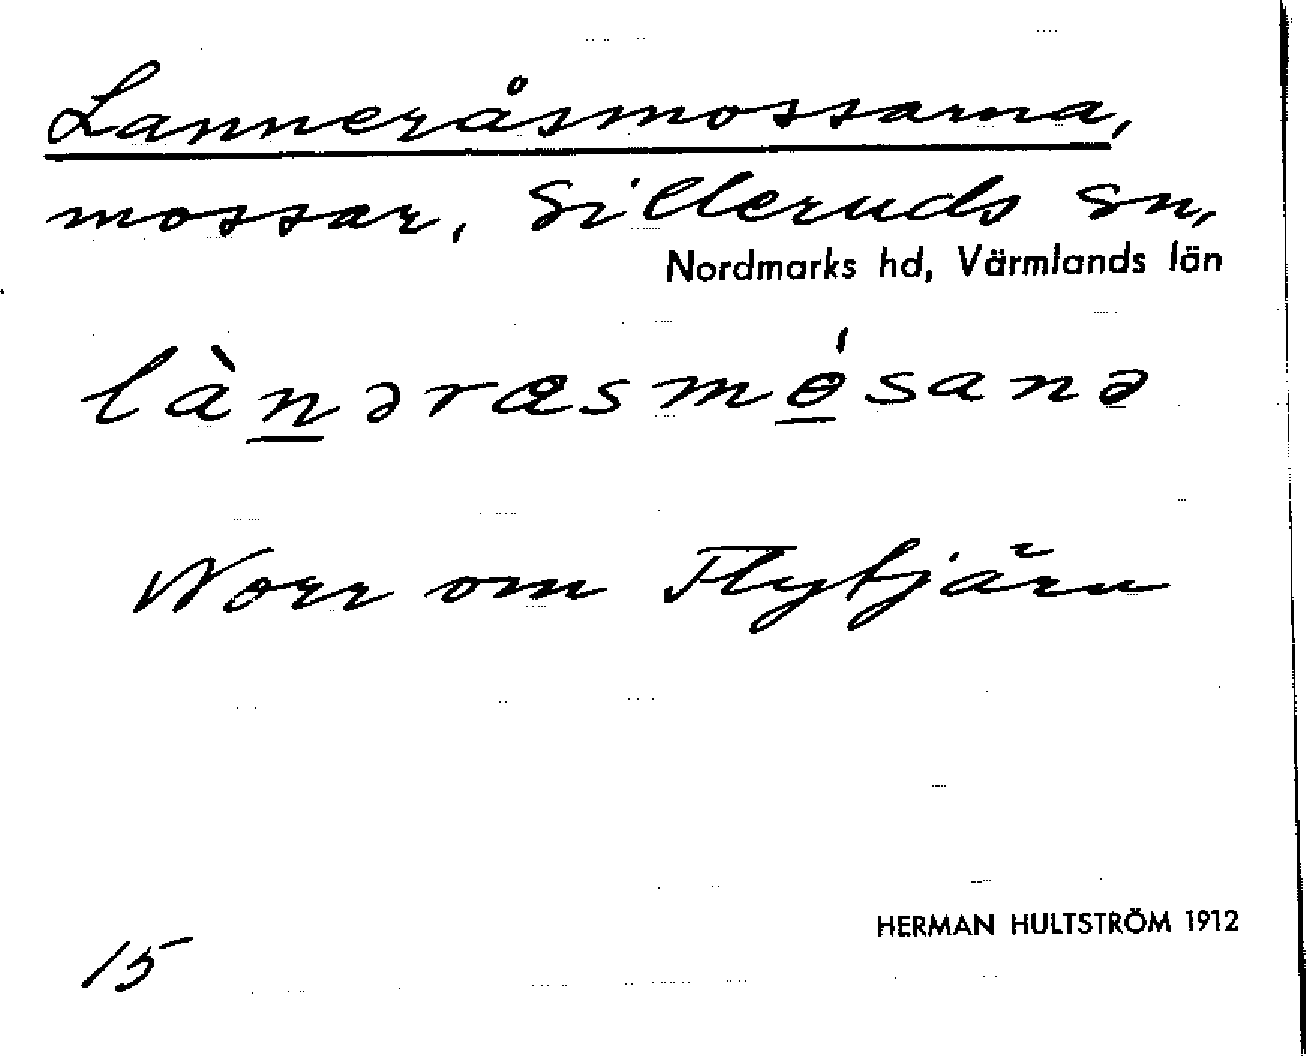 Lanneråsmossarna,
mossar, Silleruds sn,
Nordmarks hd, Värmlands län
lànəræsmɵ́sanə
Norr om Flytjärn
HERMAN HULTSTRÖM 1912
15